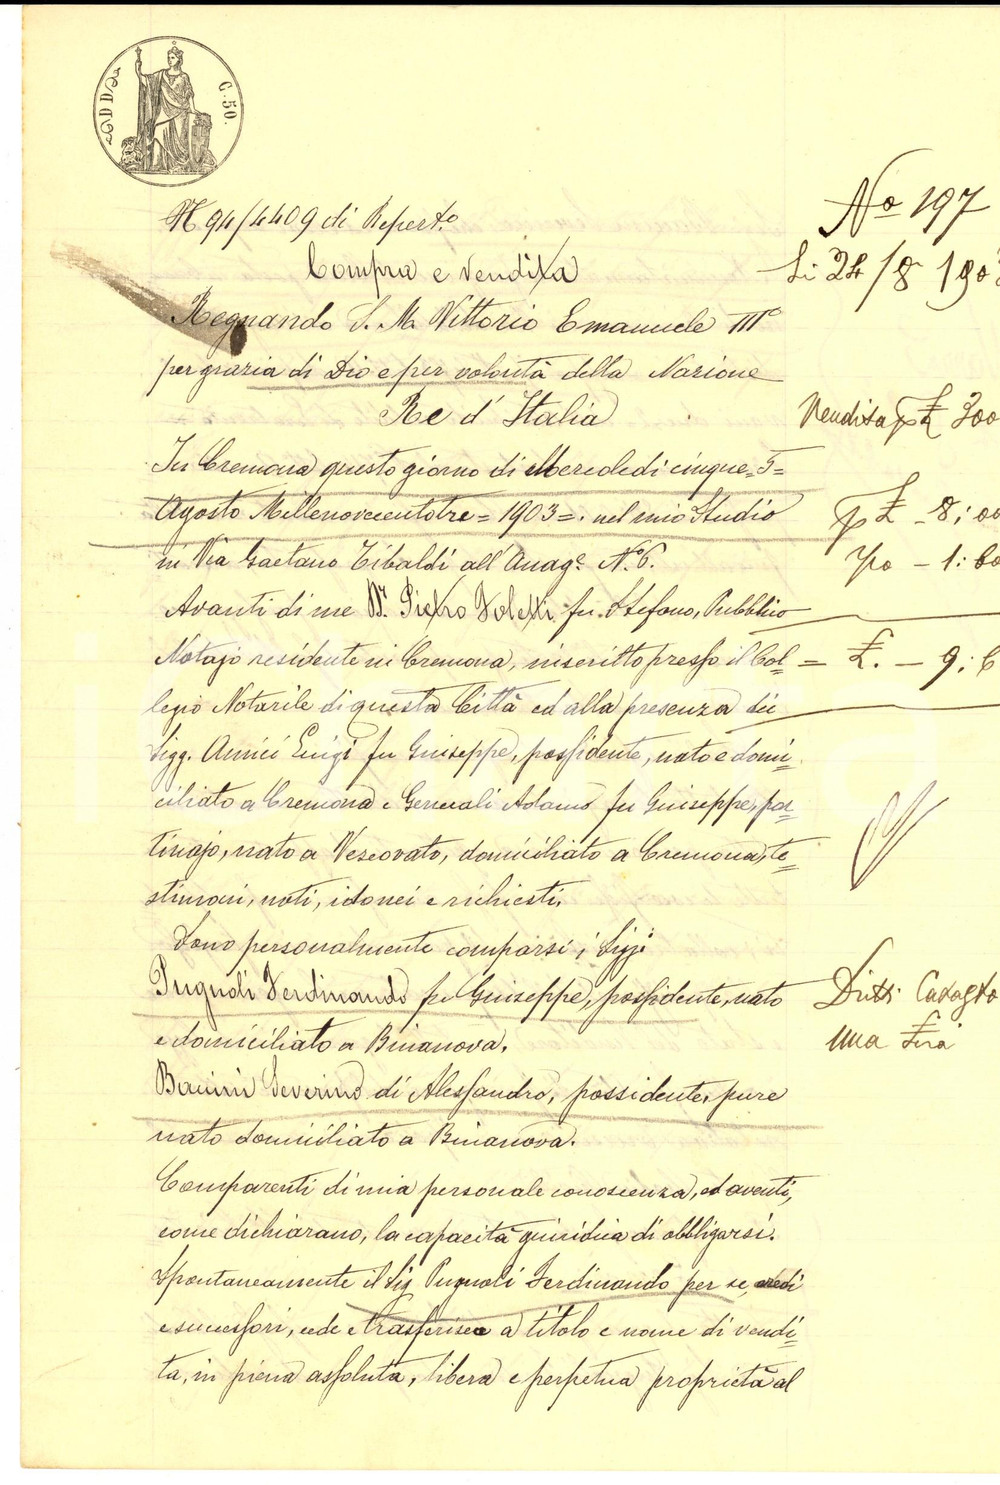 C. 50.
N 94/4409 di Repert.o
Compra e Vendita
Regnando S. M. Vittorio Emanuele IIIo
per grazia di Dio e per volontà della Nazione
Re d' Italia
In Cremona questo giorno di Mercoledi cinque = 5 =
Agosto Millenovecentotre = 1903 =. nel mio Studio
in Via Gaetano Tibaldi all' Anag.e N.o 6.
Avanti di me Dr. Pietro fu Stefano, Pubblico
Notajo residente in Cremona, inscritto presso il Col=
legio Notarile di questa Città ed alla presenza dei
Sigg. Luigi fu Giuseppe, possidente, nato e domi=
ciliato a Cremona e Generali Adamo fu Giuseppe, por=
tinajo, nato a Vescovato, domiciliato a Cremona, te=
stimoni, noti, idonei e richiesti.
Sono personalmente comparsi i Sigg.i
Pugnoli Ferdinando fu Giuseppe, possidente, nato
e domiciliato a Binanova.
Severino di Alessandro, possidente, pure
nato domiciliato a Binanova.
Comparenti di mia personale conoscenza, ed aventi,
come dichiarano, la capacità giuridica di obbligarsi.
Spontaneamente il Sig Pugnoli Ferdinando per se, eredi
e successori, cede e trasferisce a titolo e nome di vendi=
ta, in piena assoluta, libera e perpetua proprietà al
No 197
Li 24/8 190
Vendita p £ 300
p £ - 8:00
- 1:60
= £. - 9:6
Dritti Catasto
una Lira